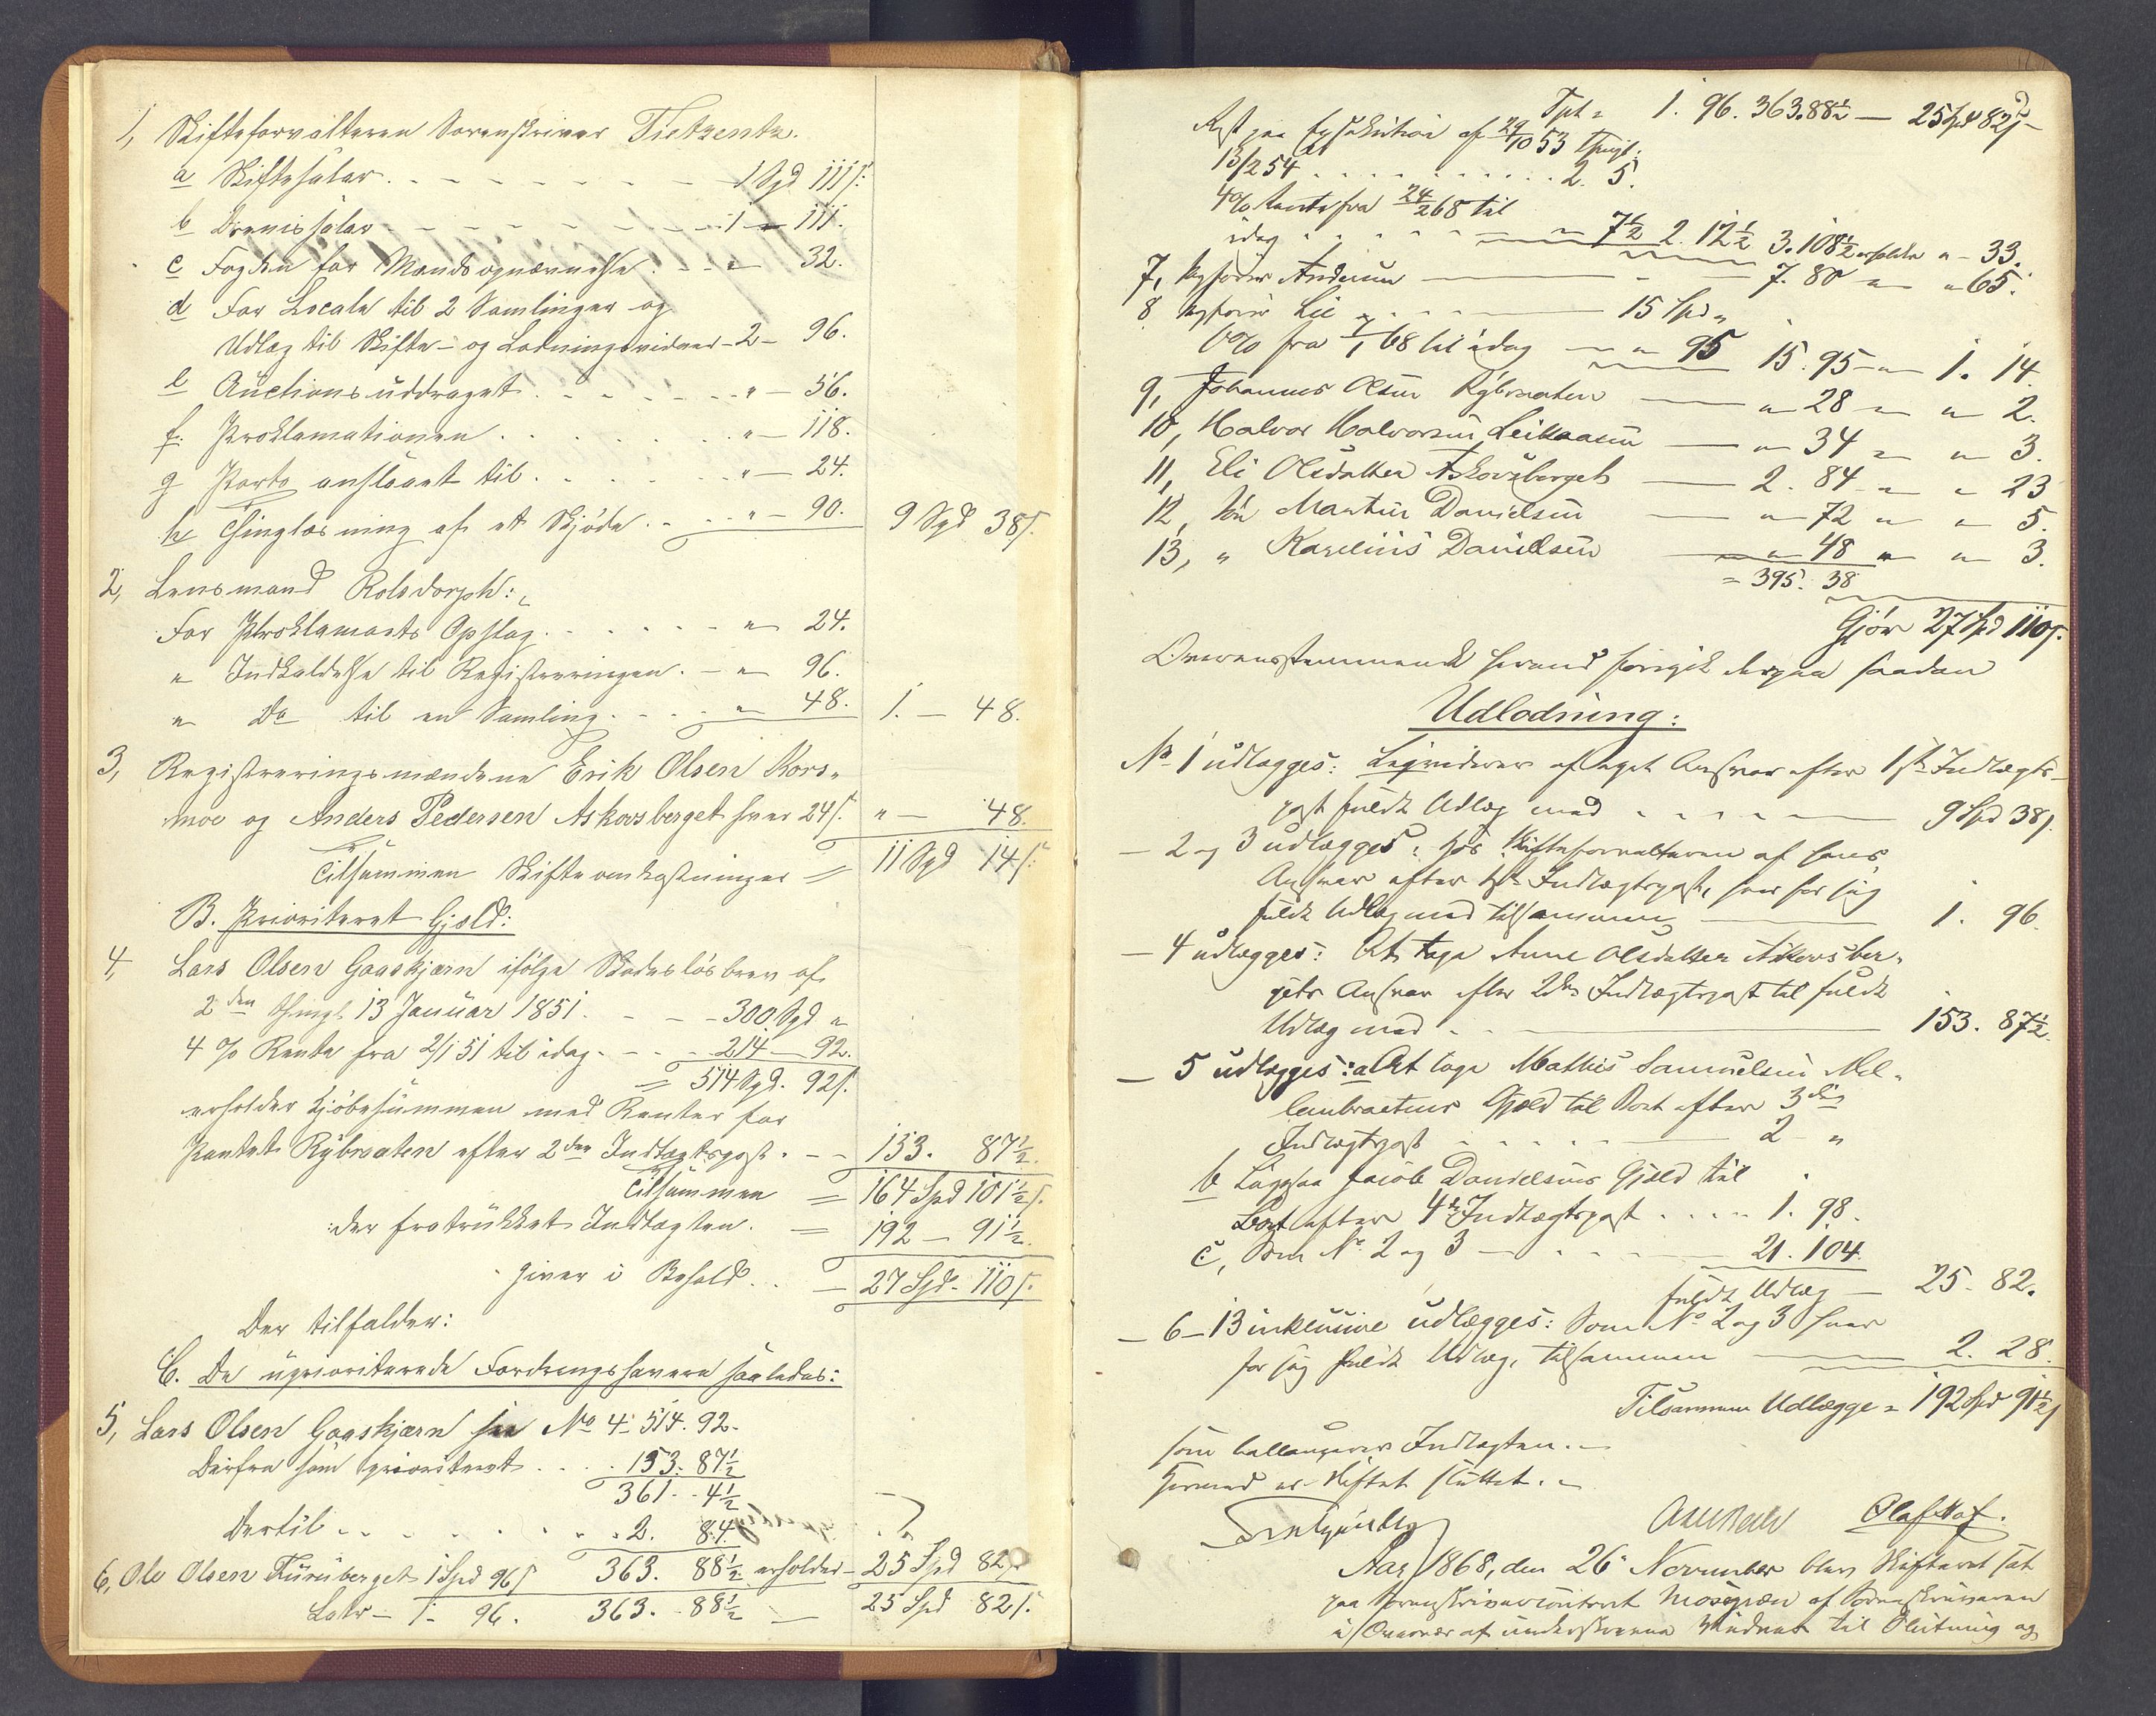 1, Skifteforvalteren Sorenskriver Tietzentz.
a Skiftesalær . . . 1 Spd 111 s:
b Brevissalær . . . 1 - 111.
c Fogden for Mændsopnævnelse . . " 32.
d For Locale til 2 Samlinger og
Udlæg til Skifte- og Lodningsvidner - 2 - 96.
e Auctionsuddraget . . . " - 56.
f. Proklamationen . . . " - 118.
g Porto anslaaet til . . . " - 24.
h Thinglæsning af et Skjøde . . " - 90. 9 Spd 38 s.
2, Lensmand Rolsdorph:
For Proklamaets Opslag . . . " 24.
" Indkaldelse til Registreringen . - " 96.
" Do til en Samling . . . " 48. 1. - 48.
3, Registreringsmændene Erik Olsen Kors-
moe og Anders Pedersen Askovsberget hver 24 s. " - 48.
Tilsammen Skifteomkostninger = 11 Spd 14 s:
B. Prioriteret Gjæld:
4, Lars Olsen Gaaskjærn ifølge Skadesløsbrev af
2den thingl. 13 Januar 1851 . - - 300 Spd "
4 % Rente fra 2/1 51 til idag . - - 214 - 92.
= 514 Spd. 92 s.
erholder Kjøbesummen med Renter for
Pantet Rybraaten efter 2den Indtægtspost . - - 153. 87½.
Tilsammen = 164 Spd 101½ s.
der fratrukket Indtægten. = 192 - 91½.
giver i Behold . . - 27 Spd. 110 s.
Der tilfalder:
C. De uprioriterede Fordringshavere saaledes:
5, Lars Olsen Gaaskjærn se No 4: 514. 92.
Derfra som prioriteret . . . 153. 87½
361. 4½
Dertil . . . 2. 84.
6, Ole Olsen Furuberget 1 Spd 96 s 363. 88½ erholder - 25 Spd 82 s
Lateris - 1 - 96. 363. 88½ - 25 Spd 82 s.
Tpt = 1. 96. 363.88½ - 25 Spd 82 s -
Rest paa Exsekution af 29/10 53 thingl.
13/2 54 . . . 2. 5.
4% Rente fra 24/2 68 til
idag . . . " 7½ 2. 12½ 3. 108½ erholder " - 33.
7, Sagfører Andersen - 7. 80 - " 65.
8 Sagfører Lie - 15 Spd "
6% fra 7/1 68 til idag - " 95 15. 95 - " 1. 14.
9, Johannes Olsen Rybraaten - " 28 - " 2.
10, Halvor Halvorsen Leikaasen - " 34 - " 3.
11, Eli Olsdatter Askovsberget - 2. 84 - " 23
12, Martin Danielsen - " 72 - " 5.
13, " Karelius Danielsen - " 48 - " 3.
= 395. 38
Gjør 27 Spd 110 s.
Overensstemmende hermed foregik derpaa saadan
Udlodning:
No 1 udlægges: Liqviderer af eget Ansvar efter 1ste Indtægts-
post fuldt Udlæg med . . . 9 Spd 38 s.
- 2 og 3 udlægges: hos Skifteforvalteren af hans
Ansvar efter 1ste Indtægtspost, hver for sig
fuldt Udlæg med tilsammen - 1. 96.
- 4 udlægges: At tage Anne Olsdatter Askovsber-
gets Ansvar efter 2den Indtægtspost til fuldt
Udlæg med - 153. 87½.
- 5 udlægges: a At tage Mathis Samuelsen Mel-
lembraatens Gjæld til Boet efter 3die
Indtægtspost . . . 2 "
b Ligesaa Jacob Danielsens Gjæld til
Boet efter 4de Indtægtspost . . . 1. 98.
c, Som No 2 og 3 - 21. 104.
fuldt Udlæg - 25. 82.
- 6-13 inklusive udlægges: Som No 2 og 3 hver
for sig fuldt Udlæg, tilsammen - 2. 28.
Tilsammen Udlægge = 192 Spd 91½ s
som ballancerer Indtægten. -
Hermed er Skiftet sluttet. -
Olaf Hof.
Aar 1868, den 26 November blev Skifteret sat
paa Sorenskrivercontoret Mosegræn af Sorenskriveren
i Overvær af underskrevne Vidner til Slutning og